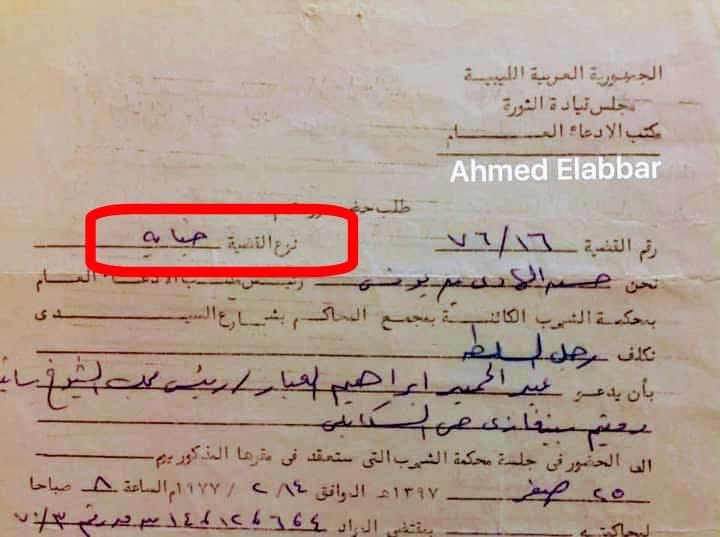 الجمهورية العربية الليبية
مجلس قيادة الثورة
مكتب الادعاء العــــام
Ahmed Elabbar
طلب حضور
رقم القضية ٧٦/١٦ نوع القضية جنايه
نحن يونس رئيس مكتب الادعاء العام
بمحكمة الشعب الكائنــة بمجمع المحاكم بشارع السيدى
نكلف رجل السلطه
بأن يدعو عبد الحميد ابراهيم العبار / رئيس مجلس الشيوخ
ويقيم ببنغازى حى السكابلى
الى الحضور فى جلسة محكمة الشعب التى ستعقد فى مقرها المذكور يوم
٢٥ صفر ١٣٩٧هـ الموافق ١٤ / ٢ / ١٩٧٧م الساعة ٨ صباحا
بمقتضى المواد